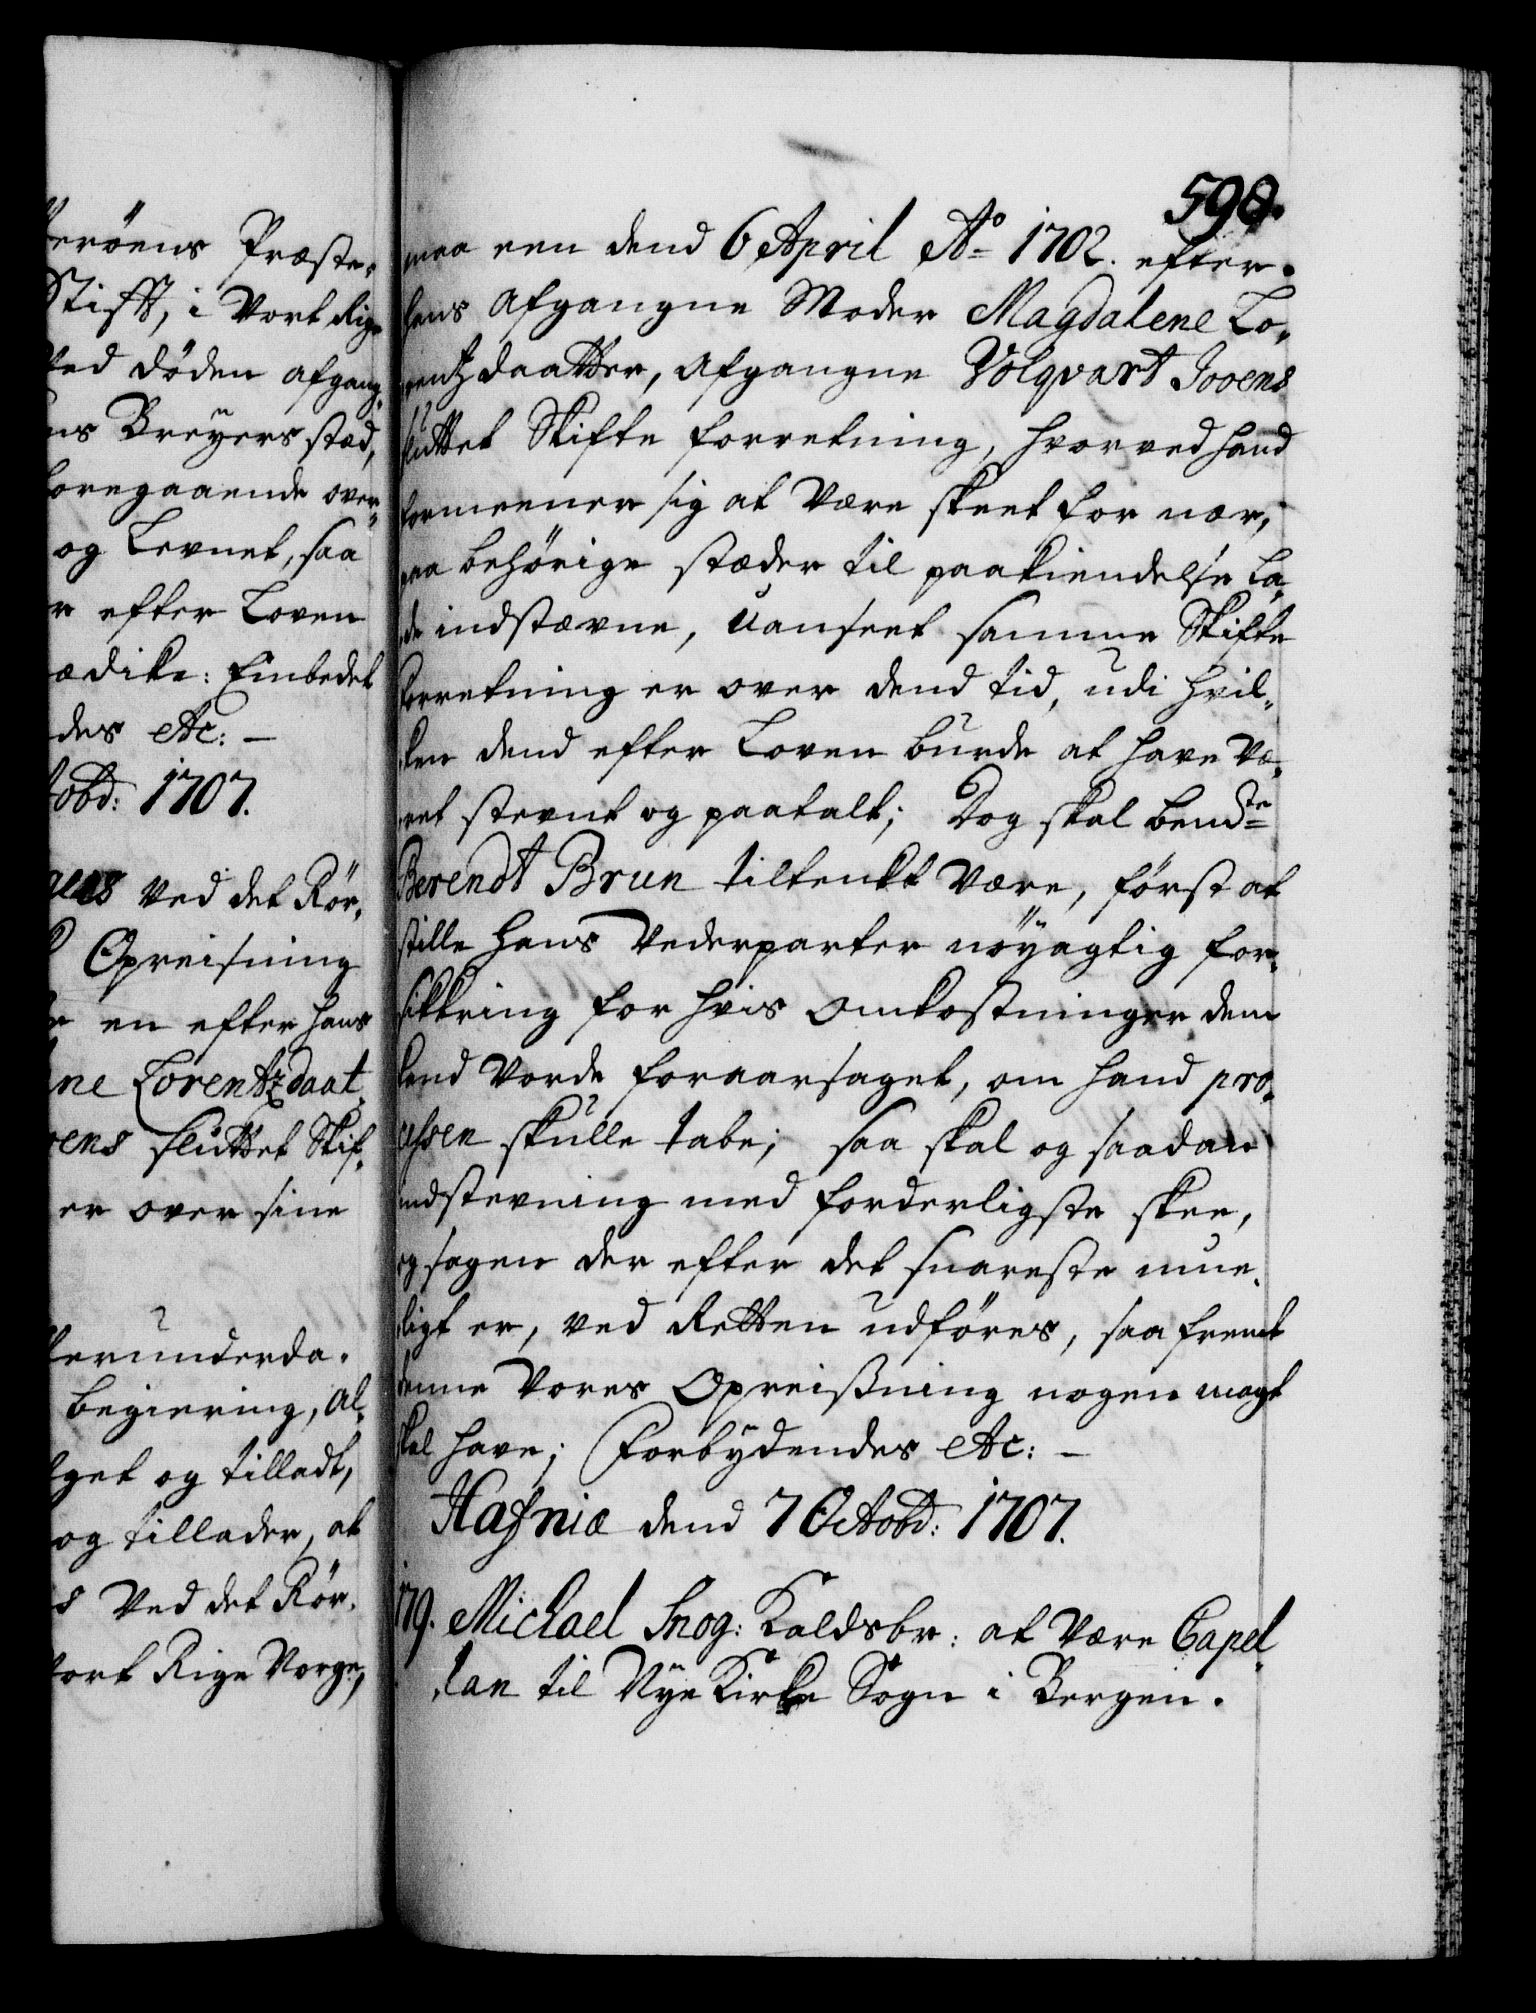 eröens Præste-
Stifft, i Vort Rige
ved döden afgang-
ns Breÿers stæd,
foregaaende over-
og Levnet, saa
r efter Loven
ædike: Embedet
des etc: –
tobd: 1707.
ved det Rör-
Opreisning
en efter hans
ne Lorentzdaat-
vens sluttet Skif-
er over sine
erunderda-
begiering, al-
get og tilladt,
og tillader, at
s ved det Rör-
Vort Rige Norge,
598.
maa een dend 6 April Ao 1702. efter
hans afgangne Moder Magdalene Lo-
rentzdaatter, afgangne Volqvart Jovens
sluttet Skifte forretning, hvorved hand
formeener sig at være skeet for nær,
paa behörige stæder til paakiendelse la-
de indstævne, uanseet samme Skifte
forretning er over dend tid, udi hvil-
ken dend efter Loven burde at have væ-
ret stevnt og paatalt; Dog skal bemdte
Berendt Brun tiltenkt være, först at
stille hans Vederparter nöÿagtig for-
sikkring for hvis omkostninger dem
kand vorde foraarsaget, om hand pro-
cessen skulle tabe; saa skal og saadan
indstevning med forderligste skee,
og sagen der efter det snareste mue-
ligt er, ved Retten udföres, saafremt
denne Vores Opreisning nogen magt
skal have; Forbÿdendes etc: –
Hafniæ dend 7 Octobd: 1707.
179. Michael Snog: Kaldsbr: at være Capel-
lan til Nÿe Kirke Sogn i Bergen.